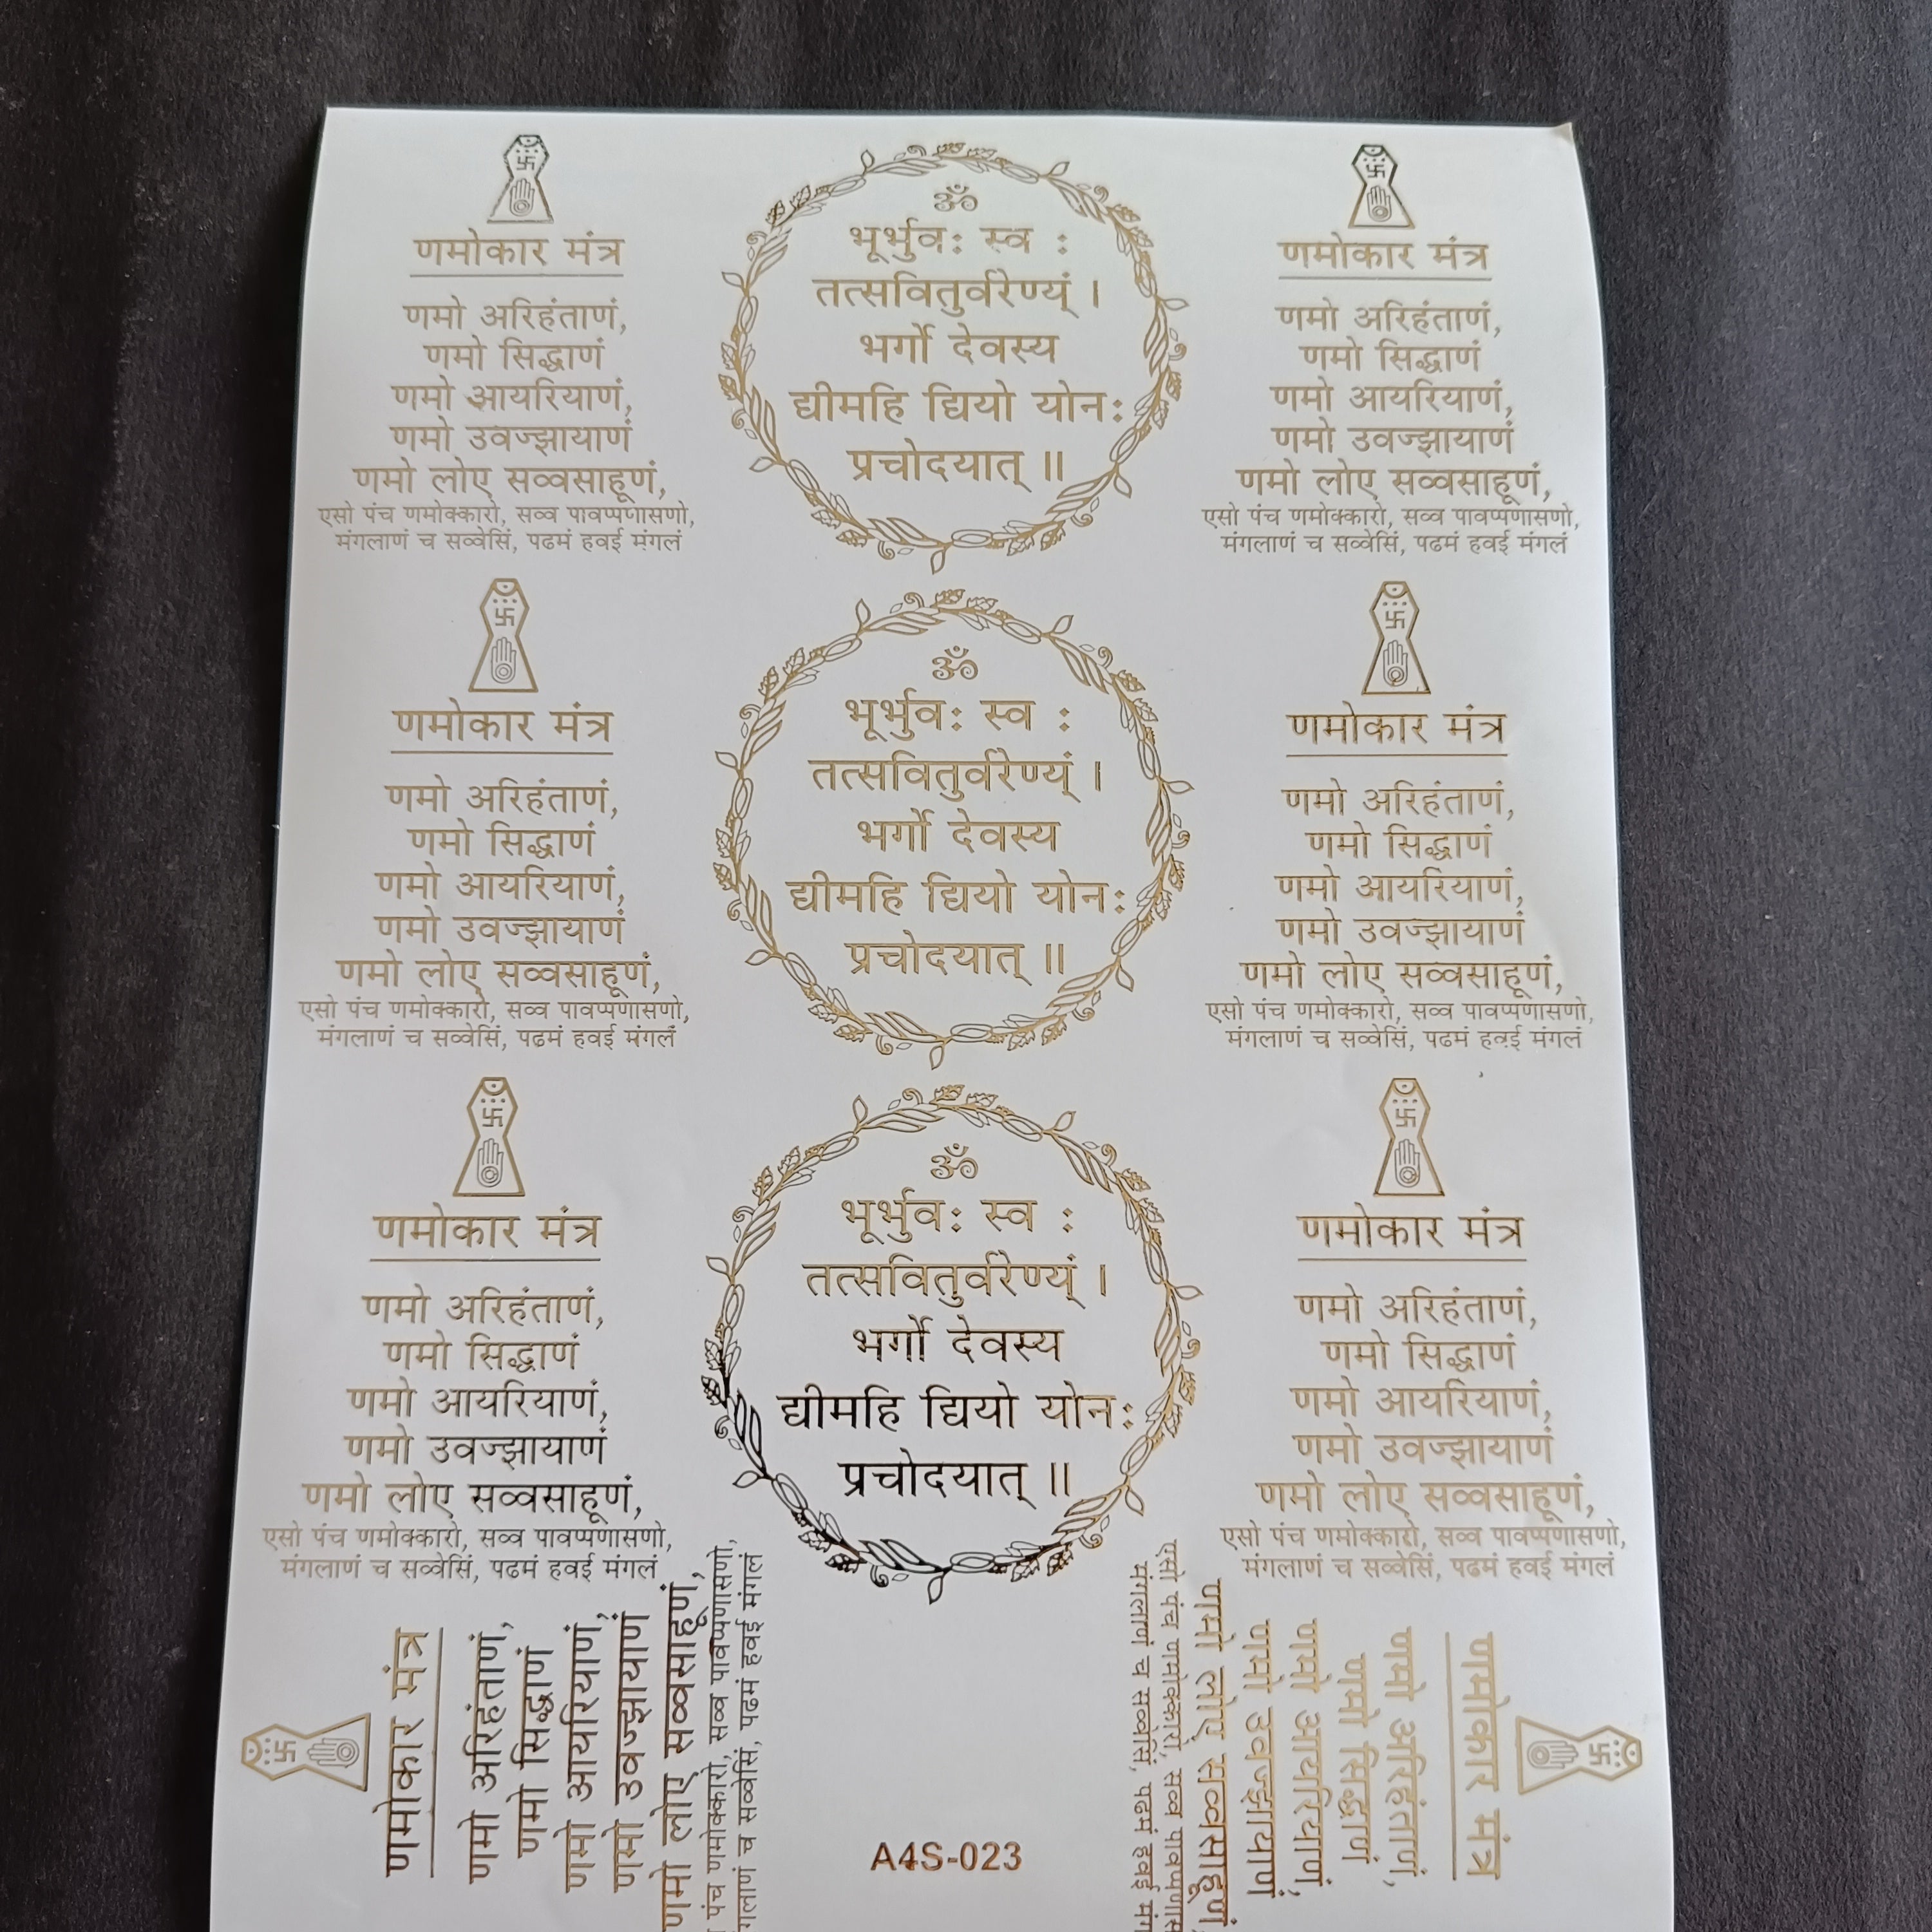 णमोकार मंत्र
णमो अरिहंताणं,
णमो सिद्धाणं
णमो आयरियाणं,
णमो उवज्झायाणं
णमो लोए सव्वसाहूणं,
एसो पंच णमोक्कारो, सव्व पावप्पणासणो,
मंगलाणं च सव्वेसिं, पढमं हवई मंगलं
ॐ
भूर्भुवः स्व :
तत्सवितुर्वरेण्यं ।
भर्गो देवस्य
द्यीमहि द्यियो योनः
प्रचोदयात् ॥
णमोकार मंत्र
णमो अरिहंताणं,
णमो सिद्धाणं
णमो आयरियाणं,
णमो उवज्झायाणं
णमो लोए सव्वसाहूणं,
एसो पंच णमोक्कारो, सव्व पावप्पणासणो,
मंगलाणं च सव्वेसिं, पढमं हवई मंगलं
णमोकार मंत्र
णमो अरिहंताणं,
णमो सिद्धाणं
णमो आयरियाणं,
णमो उवज्झायाणं
णमो लोए सव्वसाहूणं,
एसो पंच णमोक्कारो, सव्व पावप्पणासणो,
मंगलाणं च सव्वेसिं, पढमं हवई मंगलं
ॐ
भूर्भुवः स्व :
तत्सवितुर्वरेण्यं ।
भर्गो देवस्य
द्यीमहि द्यियो योनः
प्रचोदयात् ॥
णमोकार मंत्र
णमो अरिहंताणं,
णमो सिद्धाणं
णमो आयरियाणं,
णमो उवज्झायाणं
णमो लोए सव्वसाहूणं,
एसो पंच णमोक्कारो, सव्व पावप्पणासणो,
मंगलाणं च सव्वेसिं, पढमं हवई मंगलं
णमोकार मंत्र
णमो अरिहंताणं,
णमो सिद्धाणं
णमो आयरियाणं,
णमो उवज्झायाणं
णमो लोए सव्वसाहूणं,
एसो पंच णमोक्कारो, सव्व पावप्पणासणो,
मंगलाणं च सव्वेसिं, पढमं हवई मंगलं
ॐ
भूर्भुवः स्व :
तत्सवितुर्वरेण्यं ।
भर्गो देवस्य
द्यीमहि द्यियो योनः
प्रचोदयात् ॥
णमोकार मंत्र
णमो अरिहंताणं,
णमो सिद्धाणं
णमो आयरियाणं,
णमो उवज्झायाणं
णमो लोए सव्वसाहूणं,
एसो पंच णमोक्कारो, सव्व पावप्पणासणो,
मंगलाणं च सव्वेसिं, पढमं हवई मंगलं
णमोकार मंत्र
णमो अरिहंताणं,
णमो सिद्धाणं
णमो आयरियाणं,
णमो उवज्झायाणं
णमो लोए सव्वसाहूणं,
पंच णमोक्कारो, सव्व पावप्पणासणो,
च सव्वेसिं, पढमं हवई मंगलं
A4S-023
णमोकार मंत्र
णमो अरिहंताणं,
णमो सिद्धाणं
णमो आयरियाणं,
णमो उवज्झायाणं
णमो लोए सव्वसाहूणं,
एसो पंच णमोक्कारो, सव्व
मंगलाणं च सव्वेसिं, पढमं हवई